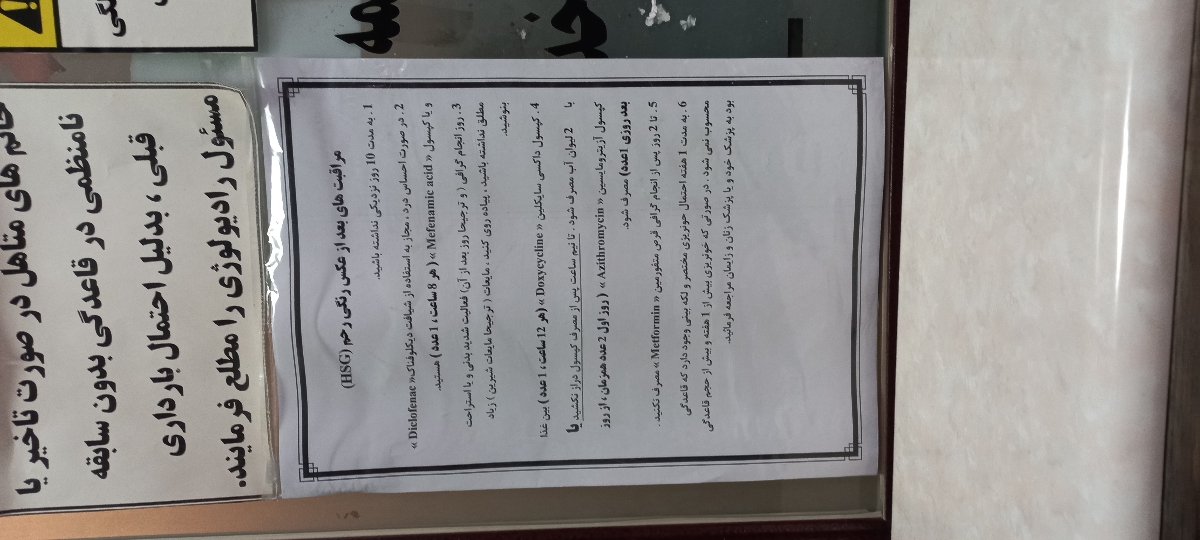 خانم های متاهل در صورت تاخیر یا
نامنظمی در قاعدگی بدون سابقه
قبلی ، بدلیل احتمال بارداری
مسئول رادیولوژی را مطلع فرمایند.
مراقبت های بعد از عکس رنگی رحم (HSG)
1. به مدت 10 روز نزدیکی نداشته باشید.
2. در صورت احساس درد ، مجاز به استفاده از شیافت دیکلوفناک « Diclofenac »
و یا کپسول « Mefenamic acid » ( هر 8 ساعت ، 1 عدد ) هستید.
3. روز انجام گرافی ( و ترجیحا روز بعد از آن) فعالیت شدید بدنی و یا استراحت
مطلق نداشته باشید ، پیاده روی کنید ، مایعات ( ترجیحا مایعات شیرین ) زیاد
بنوشید.
4. کپسول داکسی سایکلین « Doxycycline » (هر 12 ساعت ، 1 عدد ) بین غذا
با 2 لیوان آب مصرف شود . تا نیم ساعت پس از مصرف کپسول دراز نکشید یا
کپسول آزیترومایسین « Azithromycin » ( روز اول 2 عدد همزمان ، از روز
بعد روزی 1 عدد) مصرف شود.
5. تا 2 روز پس از انجام گرافی قرص متفورمین « Metformin » مصرف نکنید.
6. به مدت 1 هفته احتمال خونریزی مختصر و لکه بینی وجود دارد که قاعدگی
محسوب نمی شود . در صورتی که خونریزی بیش از 1 هفته و بیش از حجم قاعدگی
بود به پزشک خود و یا پزشک زنان و زایمان مراجعه فرمائید.